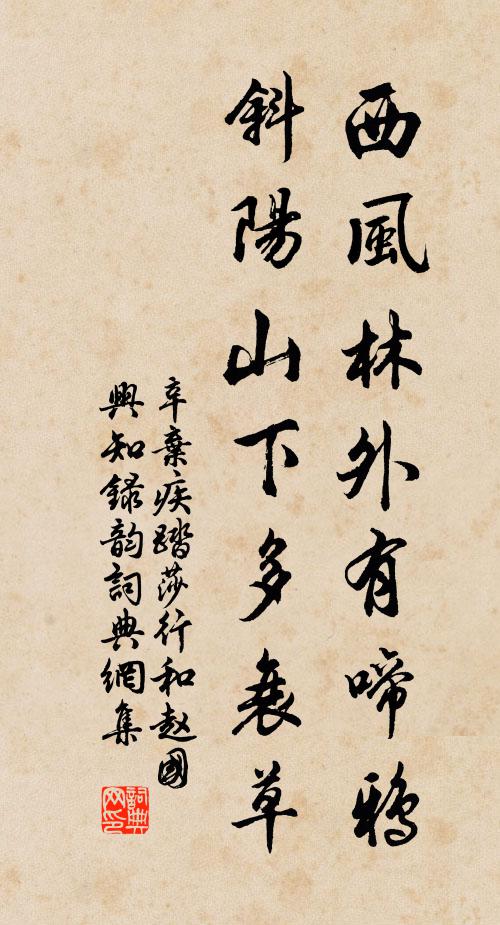 西風林外有啼鴉
斜陽山下多衰草
辛棄疾踏莎行和赵國
興知録韵詞典網集
詞典
网印